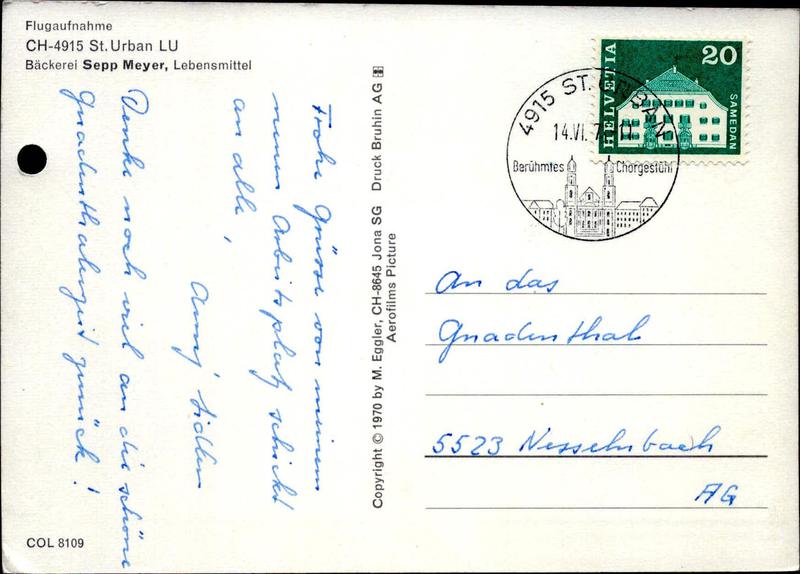 Flugaufnahme
CH-4915 St. Urban LU
Bäckerei Sepp Meyer, Lebensmittel
Frohe Grüsse von meinem
neuen Arbeitsplatz schickt
an alle,
Annj Sidler
Denke noch viel an die schöne
Gnadenthalerzeit zurück!
COL 8109
Copyright © 1970 by M. Eggler, CH-8645 Jona SG Druck Bruhin AG
Aerofilms Picture
HELVETIA
20
SAMEDAN
4915 ST. URBAN
14.VI.7 -11
Berühmtes Chorgestühl
An das
Gnadenthal
5523 Nesselnbach
AG